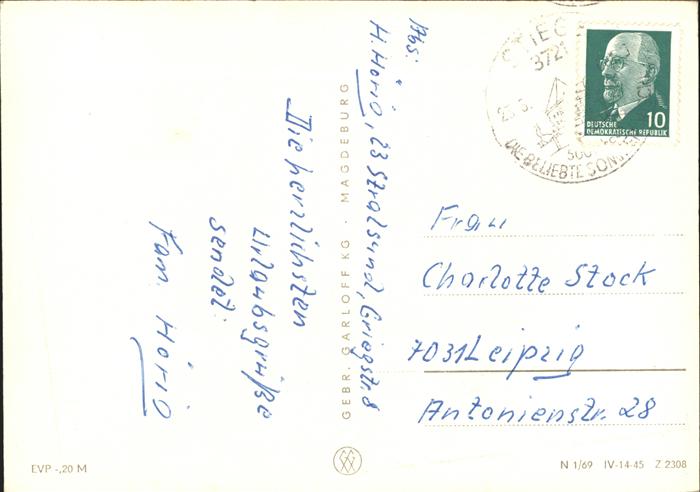 Abs:
H. Höriq, 23 Stralsund, Griegstr. 8
Die herzlichsten
Urlaubsgrüße
sendet:
Fam. Höriq
GEBR. GARLOFF KG · MAGDEBURG
3721
500
DIE BELIEBTE
DEUTSCHE
DEMOKRATISCHE REPUBLIK
10
Frau
Charlotte Stock
7031 Leipzig
Antonienstr. 28
EVP -,20 M
N 1/69 IV-14-45 Z 2308